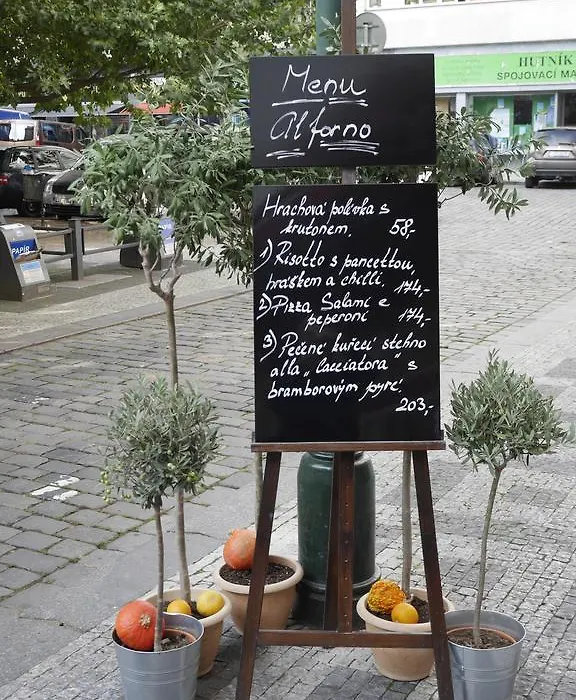 HUTNÍK
SPOJOVACÍ MA
Menu
Al forno
Hrachová polévka s
krutonem, 58,-
1) Risotto s pancettou,
hráškem a chilli, 174,-
2) Pizza Salami e
peperoni 174,-
3) Pečené kuřecí stehno
alla „Cacciatora" s
bramborovým pyré
203,-
PAPÍR